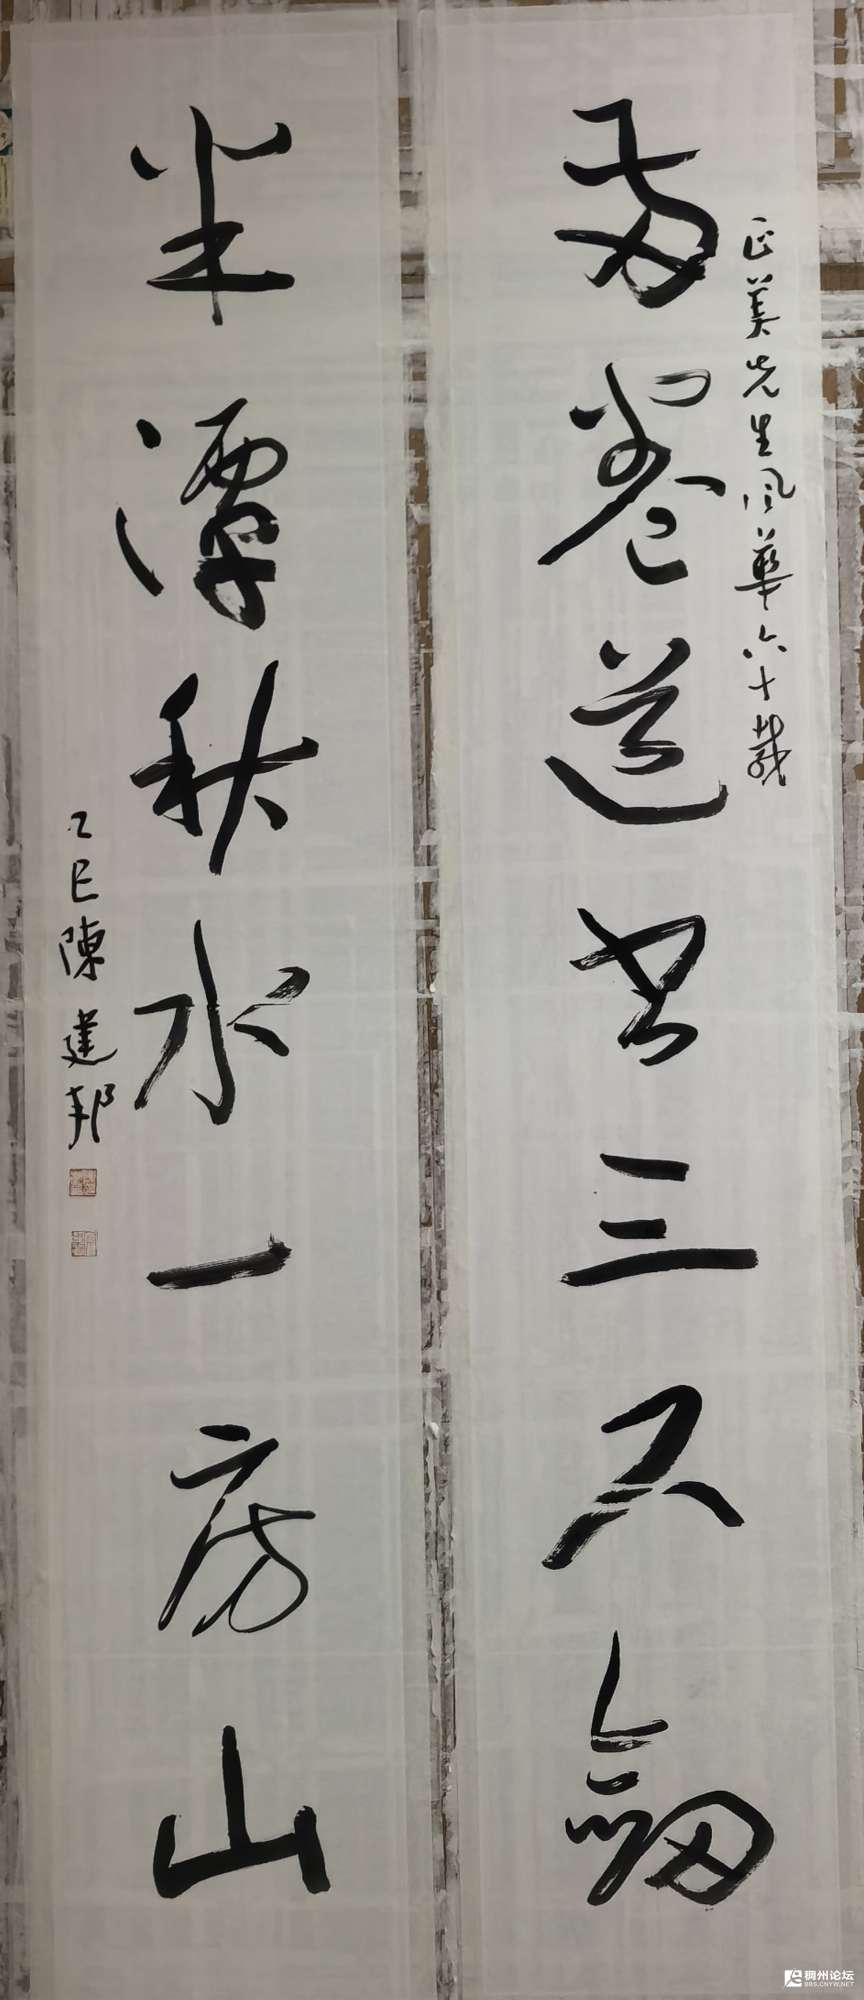 正美先生风华六十载
両卷道书三尺劒
半潭秋水一房山
乙巳陳建邦
稠州论坛
BBS.CNYW.NET